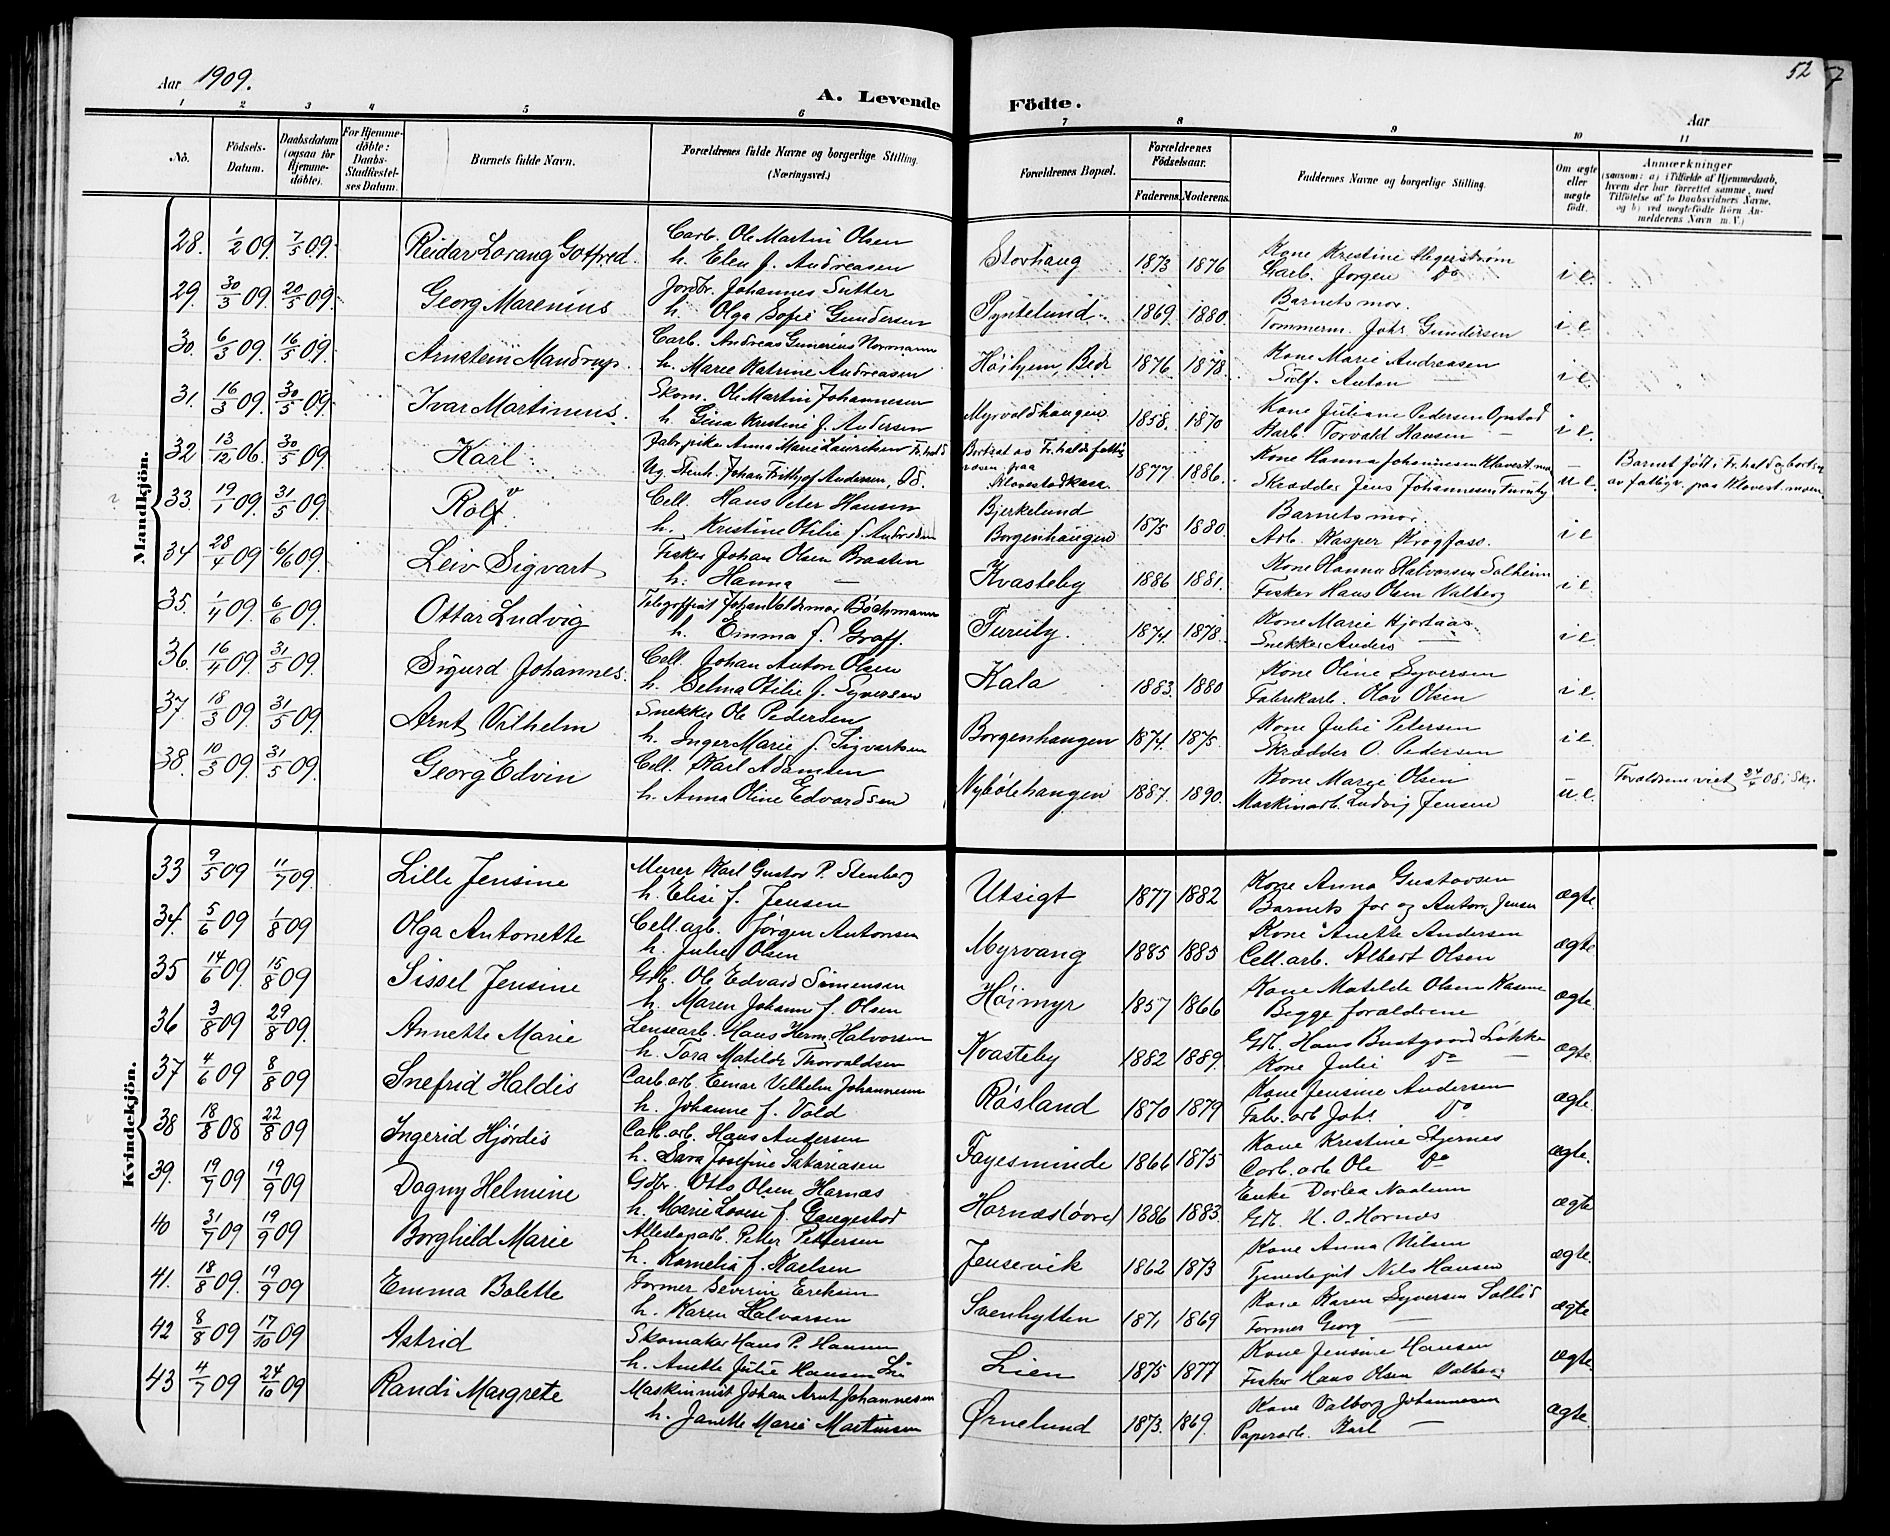 Aar 1909.
A. Levende Födte.
52
7
Aar
1 2 3 4 5 6 7 8 9 10 11
No.
Födsels-Datum.
Daabsdatum (ogsaa for Hjemme-døbte).
For Hjemme-døbte: Daabs-Stadfæstel-ses Datum.
Barnets fulde Navn.
Forældrenes fulde Navne og borgerlige Stilling. (Næringsvei.)
Forældrenes Bopæl.
Forældrenes Födselsaar.
Faderens. Moderens.
Faddernes Navne og borgerlige Stilling.
Om ægte eller uægte født.
Anmærkninger
(saasom: a) i Tilfælde af Hjemmedaab, hvem der har forrettet samme, med Tilføielse af to Daabsvidners Navne, og b) ved uegtefødte Börn An-melderens Navn m. V.)
Mandkjön.
28. 1/2 09. 7/5 09. Reidar Lorang Gotfred. Carb. Ole Martin Olsen Storhaug 1873 1876 Kone Kristine Hegerstrøm i e.
h. Elen f. Andreasen Carb. Jørgen Do
29. 30/3 09. 20/5 09. Georg Marenius Jordbr. Johannes Sutter Pyntelund. 1869. 1880. Barnets mor. i e.
h. Olga Sofie Gundersen Tømmerm. Johs. Gundersen
30. 6/3 09. 16/5 09. Arnstein Mandrup. Carb. Andreas Gunerius Normann Høihjem, Bede 1876 1878. Kone Marie Andreasen i e.
h. Marie Katrine Andreasen Sølf. Anton —
31. 16/3 09. 30/5 09. Ivar Martinius. Skom. Ole Martin Johannesen Myrvoldhaugen. 1858. 1870 Kone Juliane Pedersen Opstad i e.
h. Gina Kristine f. Andersen Karb. Torvald Hansen —
32 13/12 06. 30/5 09 Karl Fabrpike Anna Marie Lauritsen Fr.hald Bortsat av Fr.halds fattig 1877 1886. Kone Hanna Johannesen Klavest.moen u e. Barnet født i Fr.hald og bortsat
Ug. Stenh. Johan Frithjof Andersen, Od. væsen paa Klavestadkasa Skrædder Jens Johannesen Furuly av fattigv. paa Klavest.moen
33. 19/1 09. 31/5 09 Rolf. Cell. Hans Peter Hansen Bjerkelund 1875 1880. Barnets mor i e
h. Kristine Otilie f. Andersen Borgenhaugen Arb. Kasper Krogfoss.
34 28/4 09 6/6 09. Leiv Sigvart Fisker Johan Olsen Braaten Kvasteby 1886 1881. Kone Hanna Halvorsen Solheim i e.
h. Hanna — Fisker Hans Olsen Valberg
35. 1/4 09. 6/6 09. Ottar Ludvig Telegrafist Johan Valdemar Bøchmann Furuly. 1874. 1878. Kone Marie Hjortaas i e
h. Emma f. Graff. Snekker Anders —
36. 16/4 09. 31/5 09. Sigurd Johannes. Cell. Johan Anton Olsen Kala 1883. 1880 Kone Oline Syversen i e.
h. Selma Otilie f. Syversen Fabrikarb. Olav Olsen
37. 18/3 09. 31/5 09. Arnt Vilhelm Snekker Ole Pedersen Borgenhaugen 1874. 1875. Kone Julie Petersen i e.
h. Inger Marie f. Sigvartsen Skrædder O. Pedersen
38. 10/3 09. 31/5 09. Georg Edvin Cell. Karl Adamsen Nybølehaugen 1887. 1890. Kone Margi Olsen u. e. Forældrene viet 24/4 08 i Skj.
h. Anna Oline Edvardsen Maskinarb. Ludvig Jensen
Kvindekjön.
33 9/5 09 11/7 09. Lilli Jensine Murer Karl Gustav P. Stenberg Utsigt 1877 1882 Kone Anna Gustavsen ægte.
h. Elise f. Jensen Barnets far og Anton Jensen
34. 5/6 09 1/8 09 Olga Antonette Cell.arb. Jørgen Antonsen Myrvang 1885 1885 Kone Anette Andersen ægte.
h. Julie Olsen Cell.arb. Albert Olsen
35 14/6 09. 15/8 09 Sissel Jensine Gdb. Ole Edvard Simensen Høimyr 1857 1866 Kone Matilde Olsen Kasene ægte.
h. Maren Johanne f. Olsen Begge forældrene
36 3/8 09 29/8 09. Annette Marie Lensearb. Hans Herm. Halvorsen Kvasteby 1882 1889. Gdb. Hans Bustgaard Løkke ægte.
h. Tora Matilde Thorvaldsen Kone Julie Do —
37 4/6 09 8/8 09 Snefrid Haldis Carb.arb. Einar Vilhelm Johannesen Røsland 1870 1879 Kone Jensine Andersen ægte.
h. Johanne f. Vold Fabr.arb Johs. Do
38 18/8 08 22/8 09 Ingerid Hjördis Carb.arb. Hans Andersen Fayesminde 1866 1875 Kone Kristine Stjernes ægte.
h. Sara Josefine Sakariasen Carb.arb Ole Do
39. 19/7 09 19/9 09 Dagny Helmine Gdbr. Otto Olsen Hornæs Hornæsløvred 1886 1883. Enke Dorlea Naalum ægte
h. Marie Lovise f. Gaugestad Gdb. H. O. Hornæs
40 31/7 09 19/9 09 Borghild Marie Altestaparb. Petter Pettersen Jensevik 1862 1873 Kone Anna Nilsen ægte.
h. Kornelia f. Karlsen Tjenestegut Nils Hansen
41. 18/8 09. 19/9 09 Emma Bolette Former Severin Eriksen Svenhytten 1871 1869 Kone Karen Syversen Sollid ægte
h. Karen Halvorsen Former Georg —
42 8/8 09 17/10 09 Astrid Skomaker Hans P. Hansen Lien 1875 1877 Kone Jensine Hansen ægte
h. Anette Julie Hansen Lie Fisker Hans Olsen Valberg
43 4/7 09 24/10 09 Randi Margrete Maskinmst Johan Arnt Johannesen Ørnelund 1873. 1869. Kone Valborg Johannesen ægte.
h. Janette Marie Martinsen Paperarb. Karl —